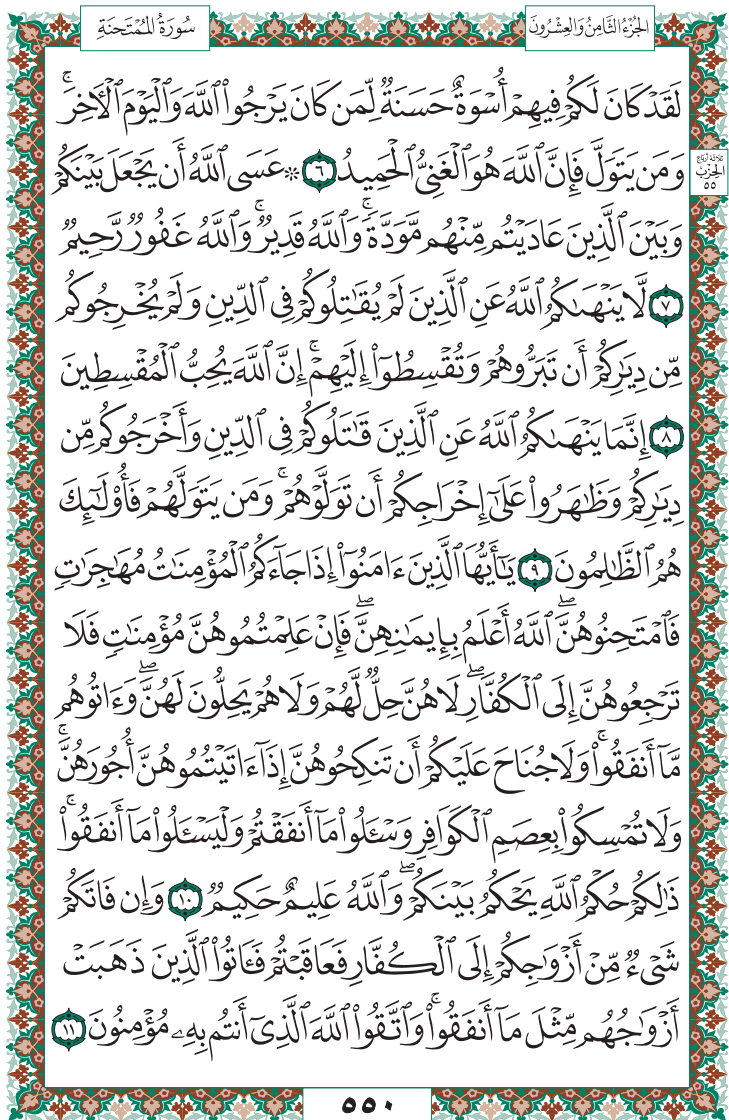 الجُزْءُ الثَّامِنُ وَالعِشْرُونَ
سُورَةُ المُمْتَحنَةِ
لَقَدْ كَانَ لَكُمْ فِيهِمْ أُسْوَةٌ حَسَنَةٌ لِّمَن كَانَ يَرْجُوا۟ ٱللَّهَ وَٱلْيَوْمَ ٱلْـَٔاخِرَۚ
وَمَن يَتَوَلَّ فَإِنَّ ٱللَّهَ هُوَ ٱلْغَنِىُّ ٱلْحَمِيدُ ٦ ۞ عَسَى ٱللَّهُ أَن يَجْعَلَ بَيْنَكُمْ
وَبَيْنَ ٱلَّذِينَ عَادَيْتُم مِّنْهُم مَّوَدَّةًۚ وَٱللَّهُ قَدِيرٌۚ وَٱللَّهُ غَفُورٌ رَّحِيمٌ
٧ لَّا يَنْهَىٰكُمُ ٱللَّهُ عَنِ ٱلَّذِينَ لَمْ يُقَٰتِلُوكُمْ فِى ٱلدِّينِ وَلَمْ يُخْرِجُوكُم
مِّن دِيَٰرِكُمْ أَن تَبَرُّوهُمْ وَتُقْسِطُوٓا۟ إِلَيْهِمْۚ إِنَّ ٱللَّهَ يُحِبُّ ٱلْمُقْسِطِينَ
٨ إِنَّمَا يَنْهَىٰكُمُ ٱللَّهُ عَنِ ٱلَّذِينَ قَٰتَلُوكُمْ فِى ٱلدِّينِ وَأَخْرَجُوكُم مِّن
دِيَٰرِكُمْ وَظَٰهَرُوا۟ عَلَىٰٓ إِخْرَاجِكُمْ أَن تَوَلَّوْهُمْۚ وَمَن يَتَوَلَّهُمْ فَأُو۟لَٰٓئِكَ
هُمُ ٱلظَّٰلِمُونَ ٩ يَٰٓأَيُّهَا ٱلَّذِينَ ءَامَنُوٓا۟ إِذَا جَآءَكُمُ ٱلْمُؤْمِنَٰتُ مُهَٰجِرَٰتٍ
فَٱمْتَحِنُوهُنَّۖ ٱللَّهُ أَعْلَمُ بِإِيمَٰنِهِنَّۖ فَإِنْ عَلِمْتُمُوهُنَّ مُؤْمِنَٰتٍ فَلَا
تَرْجِعُوهُنَّ إِلَى ٱلْكُفَّارِۖ لَا هُنَّ حِلٌّ لَّهُمْ وَلَا هُمْ يَحِلُّونَ لَهُنَّۖ وَءَاتُوهُم
مَّآ أَنفَقُوا۟ۚ وَلَا جُنَاحَ عَلَيْكُمْ أَن تَنكِحُوهُنَّ إِذَآ ءَاتَيْتُمُوهُنَّ أُجُورَهُنَّۚ
وَلَا تُمْسِكُوا۟ بِعِصَمِ ٱلْكَوَافِرِ وَسْـَٔلُوا۟ مَآ أَنفَقْتُمْ وَلْيَسْـَٔلُوا۟ مَآ أَنفَقُوا۟ۚ
ذَٰلِكُمْ حُكْمُ ٱللَّهِ يَحْكُمُ بَيْنَكُمْۖ وَٱللَّهُ عَلِيمٌ حَكِيمٌ ١٠ وَإِن فَاتَكُمْ
شَىْءٌ مِّنْ أَزْوَٰجِكُمْ إِلَى ٱلْكُفَّارِ فَعَاقَبْتُمْ فَـَٔاتُوا۟ ٱلَّذِينَ ذَهَبَتْ
أَزْوَٰجُهُم مِّثْلَ مَآ أَنفَقُوا۟ۚ وَٱتَّقُوا۟ ٱللَّهَ ٱلَّذِىٓ أَنتُم بِهِۦ مُؤْمِنُونَ ١١
ثلاثة أرباع
الحِزْب
٥٥
٥٥٠